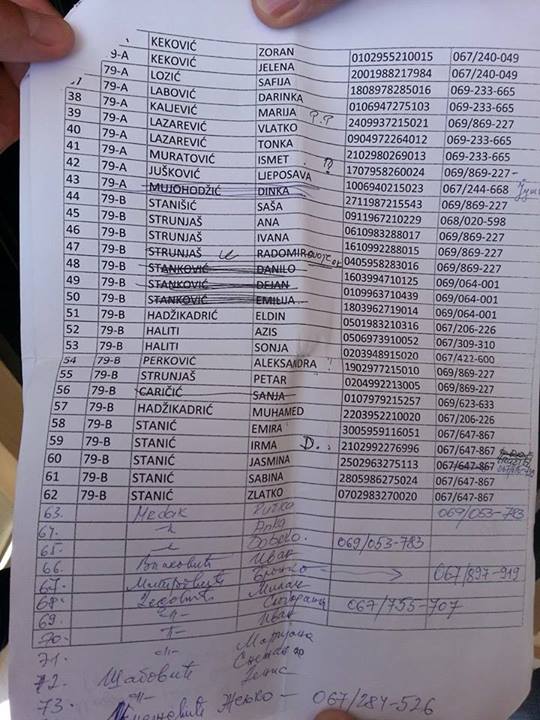 KEKOVIĆ ZORAN 0102955210015 067/240-049
79-A KEKOVIĆ JELENA 2001988217984 067/240-049
79-A LOZIĆ SAFIJA 1808978285016 069-233-665
37 79-A LABOVIĆ DARINKA 0106947275103 069-233-665
38 79-A KALJEVIĆ MARIJA ?.? 2409937215021 069/869-227
39 79-A LAZAREVIĆ VLATKO 0904972264012 069-233-665
40 79-A LAZAREVIĆ TONKA 2102980269013 069-233-665
41 79-A MURATOVIĆ ISMET 1707958260024 069/869-227 -
42 79-A JUŠKOVIĆ LJEPOSAVA 1006940215023 067/244-668
43 79-A MUJOHODŽIĆ DINKA 2711987215543 069/869-227
44 79-B STANIŠIĆ SAŠA 0911967210229 068/020-598
45 79-B STRUNJAŠ ANA 0610983288017 069/869-227
46 79-B STRUNJAŠ IVANA 1610992288015 069/869-227
47 79-B STRUNJAŠ RADOMIR 0405958283016 069/869-227
48 79-B STANKOVIĆ DANILO 1603994710125 069/064-001
49 79-B STANKOVIĆ DEJAN 0109963710439 069/064-001
50 79-B STANKOVIĆ EMILIJA 1803962719014 069/064-001
51 79-B HADŽIKADRIĆ ELDIN 0501983210316 067/206-226
52 79-B HALITI AZIS 0506973910052 067/309-310
53 79-B HALITI SONJA 0203948915020 067/422-600
54 79-B PERKOVIĆ ALEKSANDRA 1902977215010 069/869-227
55 79-B STRUNJAŠ PETAR 0204992213005 069/869-227
56 79-B CARIČIĆ SANJA 0107979215257 069/623-633
57 79-B HADŽIKADRIĆ MUHAMED 2203952210020 067/206-226
58 79-B STANIĆ EMIRA 3005959116051 067/647-867
59 79-B STANIĆ IRMA D. 2102992276996 067/647-867
60 79-B STANIĆ JASMINA 2502963275113 067/647-867
61 79-B STANIĆ SABINA 2805986275024 067/647-867
62 79-B STANIĆ ZLATKO 0702983270020 067/647-867
63. Медак 069/053-783
64. -||-
65. -||- 069/053-783
66. Иван
67. 067/897-919
68. Милан
69. -||- 067/755-707
70. -||- Иван
71. -||- Маријана
72. Шабовић
73. -||-
Жељко - 067/284-526